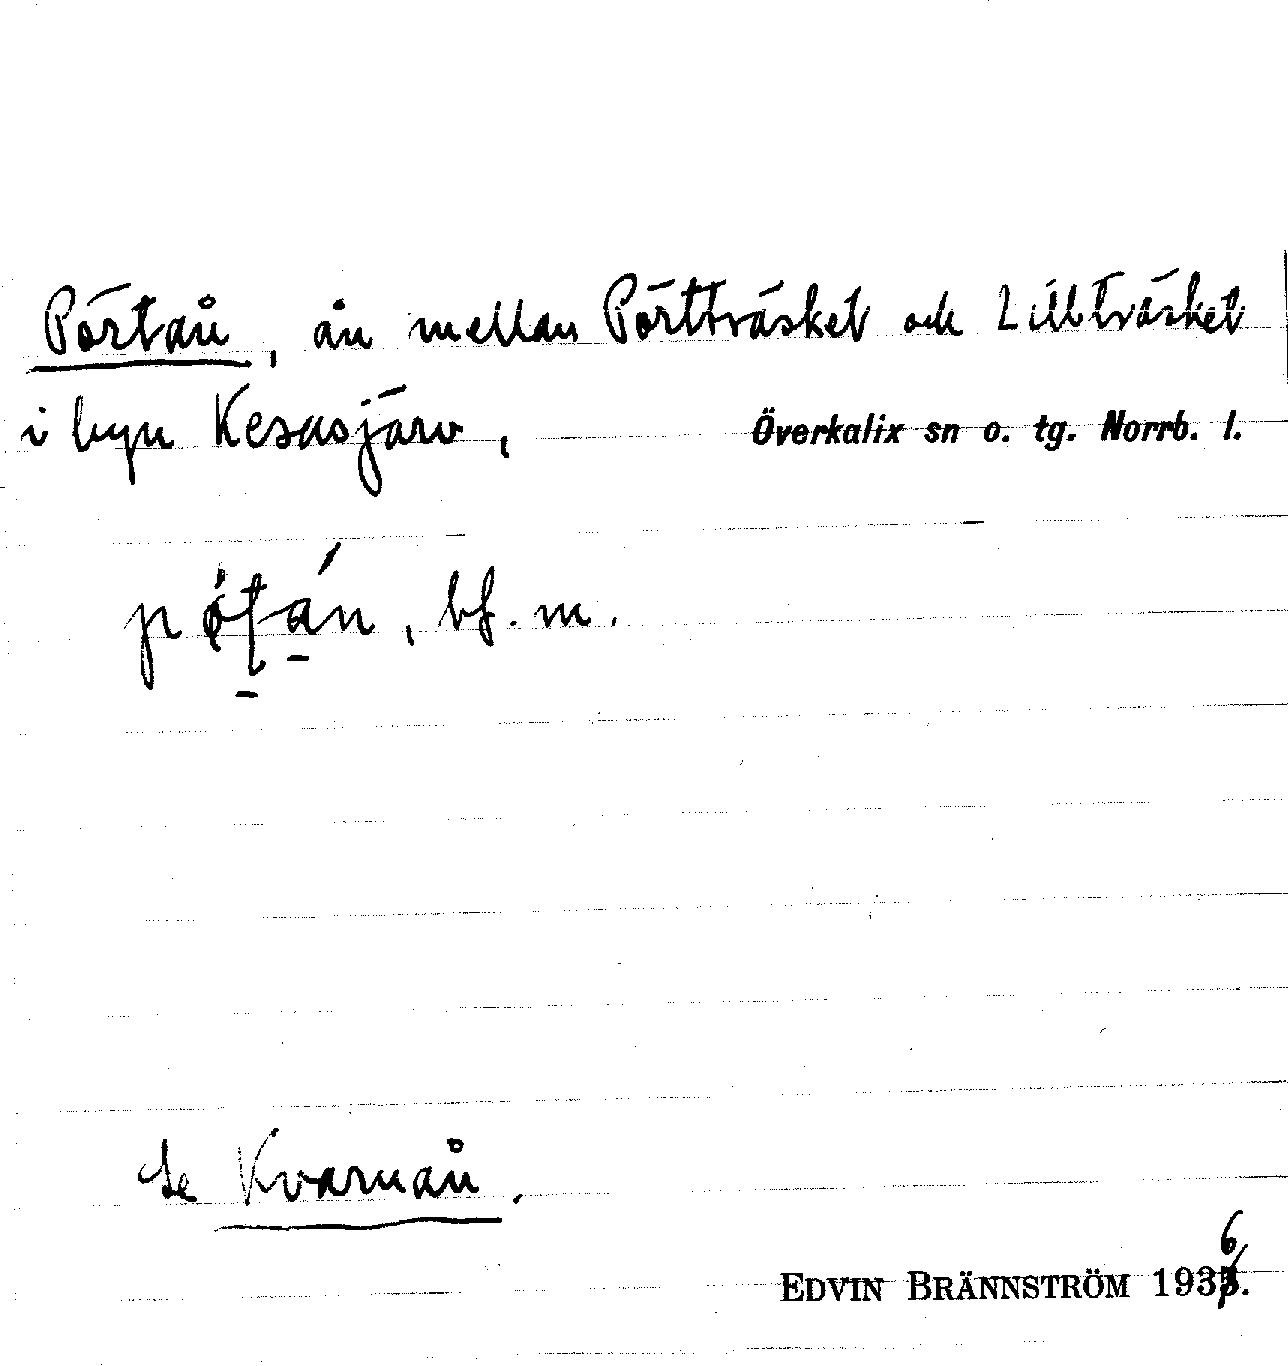 Pörtån, ån mellan Pörtträsket och Lillträsket
i byn Kesasjärv, Överkalix sn o. tg. Norrb. l.
bf. m.
Se Kvarnån.
EDVIN BRÄNNSTRÖM 1936.